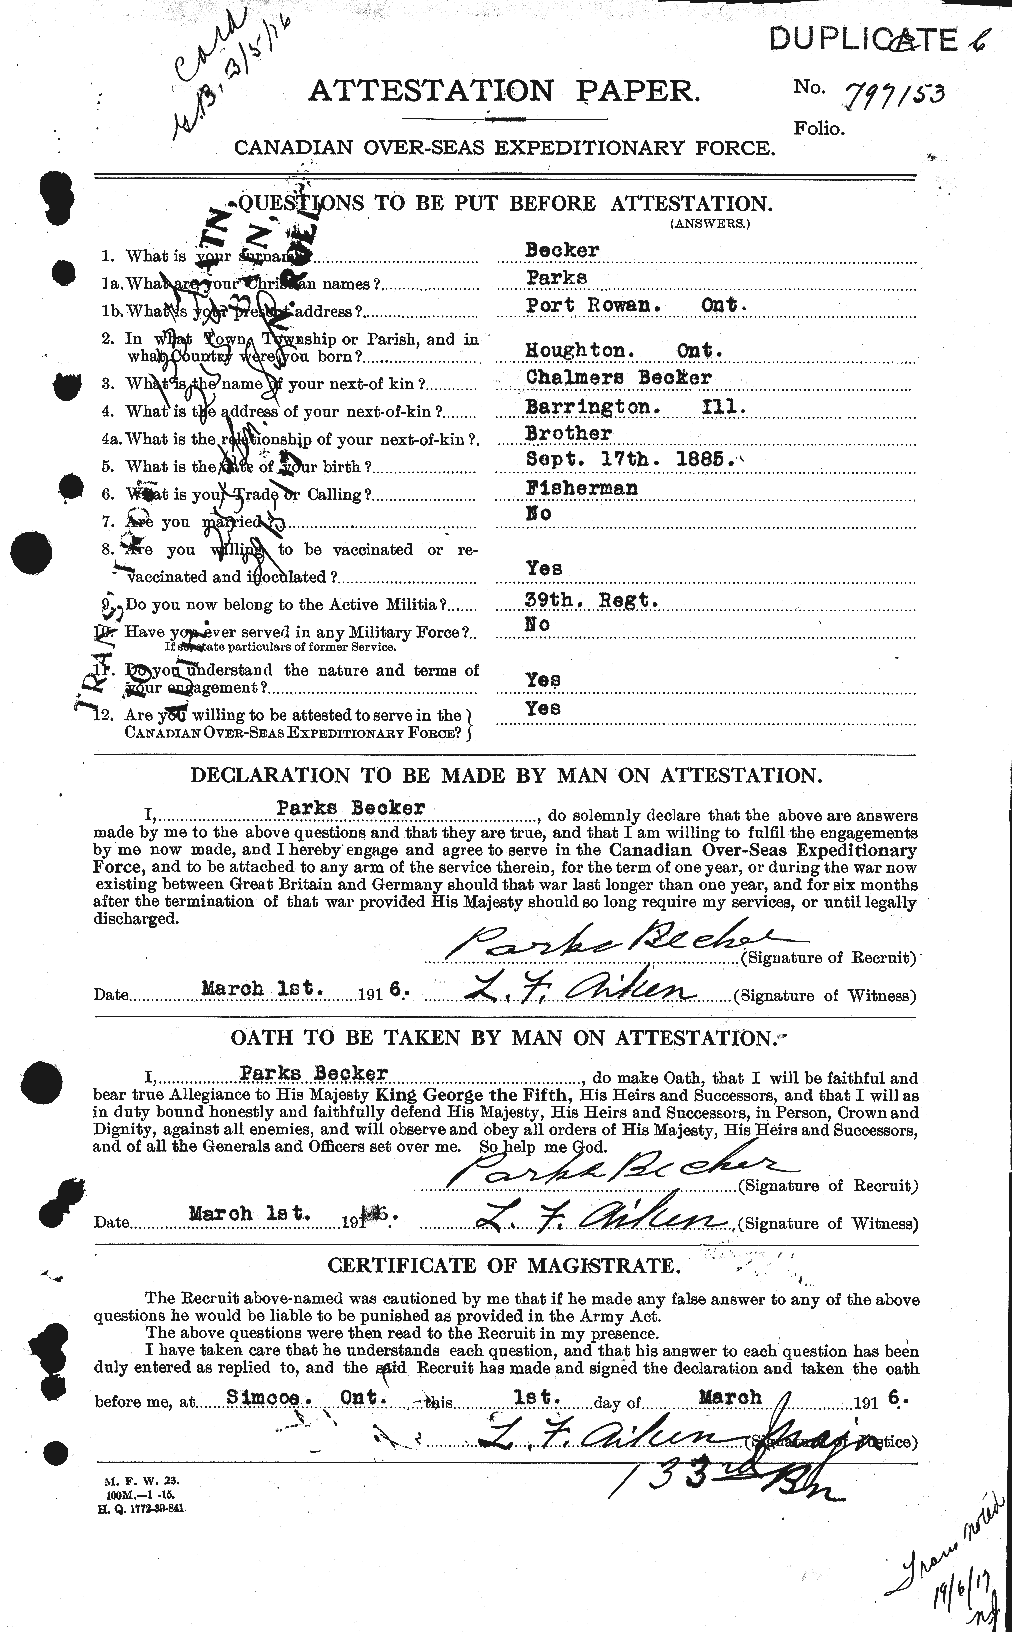 DUPLICATE 6
Card
3/5/16
ATTESTATION PAPER.
No. 797153
Folio.
CANADIAN OVER-SEAS EXPEDITIONARY FORCE.
QUESTIONS TO BE PUT BEFORE ATTESTATION.
(ANSWERS.)
1. What is your surname? Becker
1a. What are your Christian names? Parks
1b. What is your present address? Port Rowan. Ont.
2. In what Town, Township or Parish, and in
what Country were you born? Houghton. Ont.
3. What is the name of your next-of kin? Chalmers Becker
4. What is the address of your next-of-kin? Barrington. Ill.
4a. What is the relationship of your next-of-kin? Brother
5. What is the date of your birth? Sept. 17th. 1885.
6. What is your Trade or Calling? Fisherman
7. Are you married? No
8. Are you willing to be vaccinated or re-
vaccinated and inoculated? Yes
9. Do you now belong to the Active Militia? 39th. Regt.
10. Have you ever served in any Military Force? No
If so, state particulars of former Service.
11. Do you understand the nature and terms of
your engagement? Yes
12. Are you willing to be attested to serve in the Yes
CANADIAN OVER-SEAS EXPEDITIONARY FORCE?
DECLARATION TO BE MADE BY MAN ON ATTESTATION.
I, Parks Becker, do solemnly declare that the above are answers
made by me to the above questions and that they are true, and that I am willing to fulfil the engagements
by me now made, and I hereby engage and agree to serve in the Canadian Over-Seas Expeditionary
Force, and to be attached to any arm of the service therein, for the term of one year, or during the war now
existing between Great Britain and Germany should that war last longer than one year, and for six months
after the termination of that war provided His Majesty should so long require my services, or until legally
discharged.
Parks Becker (Signature of Recruit)
Date March 1st. 1916. L. F. Aiken (Signature of Witness)
OATH TO BE TAKEN BY MAN ON ATTESTATION.
I, Parks Becker, do make Oath, that I will be faithful and
bear true Allegiance to His Majesty King George the Fifth, His Heirs and Successors, and that I will as
in duty bound honestly and faithfully defend His Majesty, His Heirs and Successors, in Person, Crown and
Dignity, against all enemies, and will observe and obey all orders of His Majesty, His Heirs and Successors,
and of all the Generals and Officers set over me. So help me God.
Parks Becker (Signature of Recruit)
Date March 1st. 1916. L. F. Aiken (Signature of Witness)
CERTIFICATE OF MAGISTRATE.
The Recruit above-named was cautioned by me that if he made any false answer to any of the above
questions he would be liable to be punished as provided in the Army Act.
The above questions were then read to the Recruit in my presence.
I have taken care that he understands each question, and that his answer to each question has been
duly entered as replied to, and the said Recruit has made and signed the declaration and taken the oath
before me, at Simcoe. Ont. this 1st. day of March 1916.
L. F. Aiken Major (Signature of Justice)
133rd Bn
M. F. W. 23.
100M.—1-15.
H. Q. 1772-39-841.
Trans noted
19/6/17